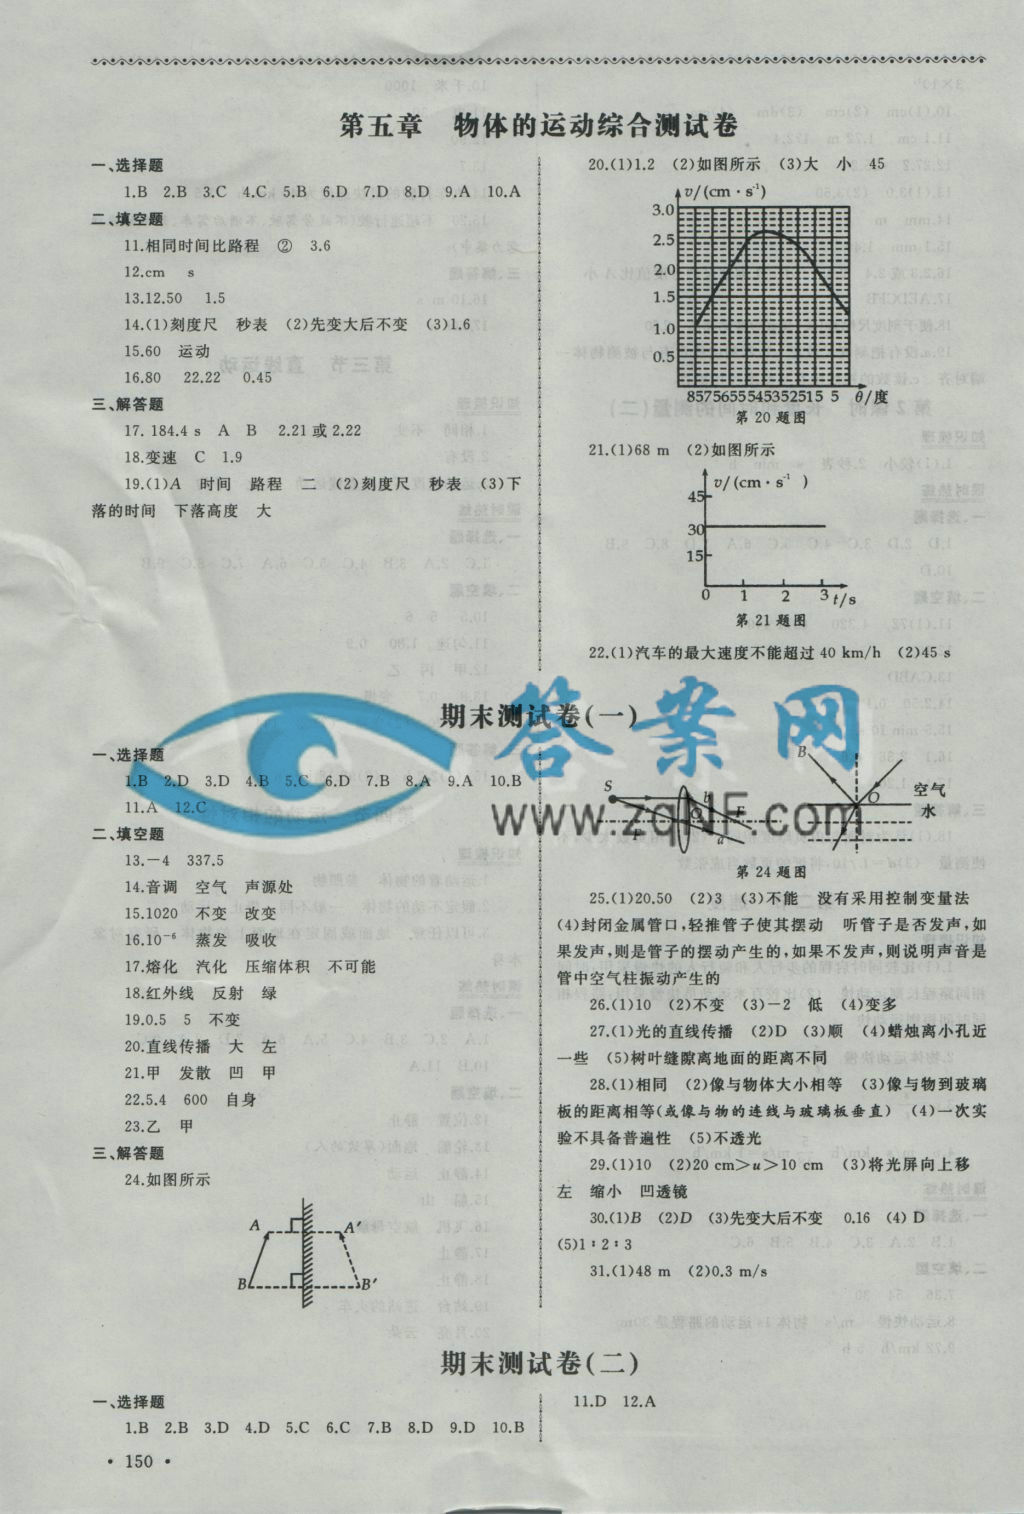 第五章　物体的运动综合测试卷
一、选择题
1.B 2.B 3.C 4.C 5.B 6.D 7.D 8.D 9.A 10.A
二、填空题
11.相同时间比路程　②　3.6
12.cm　s
13.12.50　1.5
14.(1)刻度尺　秒表　(2)先变大后不变　(3)1.6
15.60　运动
16.80　22.22　0.45
三、解答题
17. 184.4 s　A　B　2.21或2.22
18.变速　C　1.9
19.(1)A　时间　路程　二　(2)刻度尺　秒表　(3)下
落的时间　下落高度　大
20.(1)1.2　(2)如图所示　(3)大　小　45
v/(cm·s⁻¹)
3.0
2.5
2.0
1.5
1.0
0.5
85 75 65 55 45 35 25 15 5 θ/度
第 20 题图
21.(1)68 m　(2)如图所示
v/(cm·s⁻¹)
45
30
15
0 1 2 3 t/s
第 21 题图
22.(1)汽车的最大速度不能超过 40 km/h　(2)45 s
期末测试卷(一)
一、选择题
1.B 2.D 3.D 4.B 5.C 6.D 7.B 8.A 9.A 10.B
11.A 12.C
二、填空题
13.－4　337.5
14.音调　空气　声源处
15.1020　不变　改变
16.10⁻⁶　蒸发　吸收
17.熔化　汽化　压缩体积　不可能
18.红外线　反射　绿
19.0.5　5　不变
20.直线传播　大　左
21.甲　发散　凹　甲
22.5.4　600　自身
23.乙　甲
三、解答题
24.如图所示
A A′
B B′
答案网
www.zqNF.com
S b O F F a
B O 空气
水
第 24 题图
25.(1)20.50　(2)3　(3)不能　没有采用控制变量法
(4)封闭金属管口,轻推管子使其摆动　听管子是否发声,如
果发声,则是管子的摆动产生的,如果不发声,则说明声音是
管中空气柱振动产生的
26.(1)10　(2)不变　(3)－2　低　(4)变多
27.(1)光的直线传播　(2)D　(3)顺　(4)蜡烛离小孔近
一些　(5)树叶缝隙离地面的距离不同
28.(1)相同　(2)像与物体大小相等　(3)像与物到玻璃
板的距离相等(或像与物的连线与玻璃板垂直)　(4)一次实
验不具备普遍性　(5)不透光
29.(1)10　(2)20 cm＞u＞10 cm　(3)将光屏向上移
左　缩小　凹透镜
30.(1)B　(2)D　(3)先变大后不变　0.16　(4) D
(5)1∶2∶3
31.(1)48 m　(2)0.3 m/s
期末测试卷(二)
一、选择题
1.B 2.B 3.D 4.D 5.C 6.C 7.B 8.D 9.D 10.B
11.D 12.A
· 150 ·